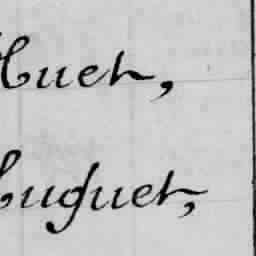 Huet,
Huguet,